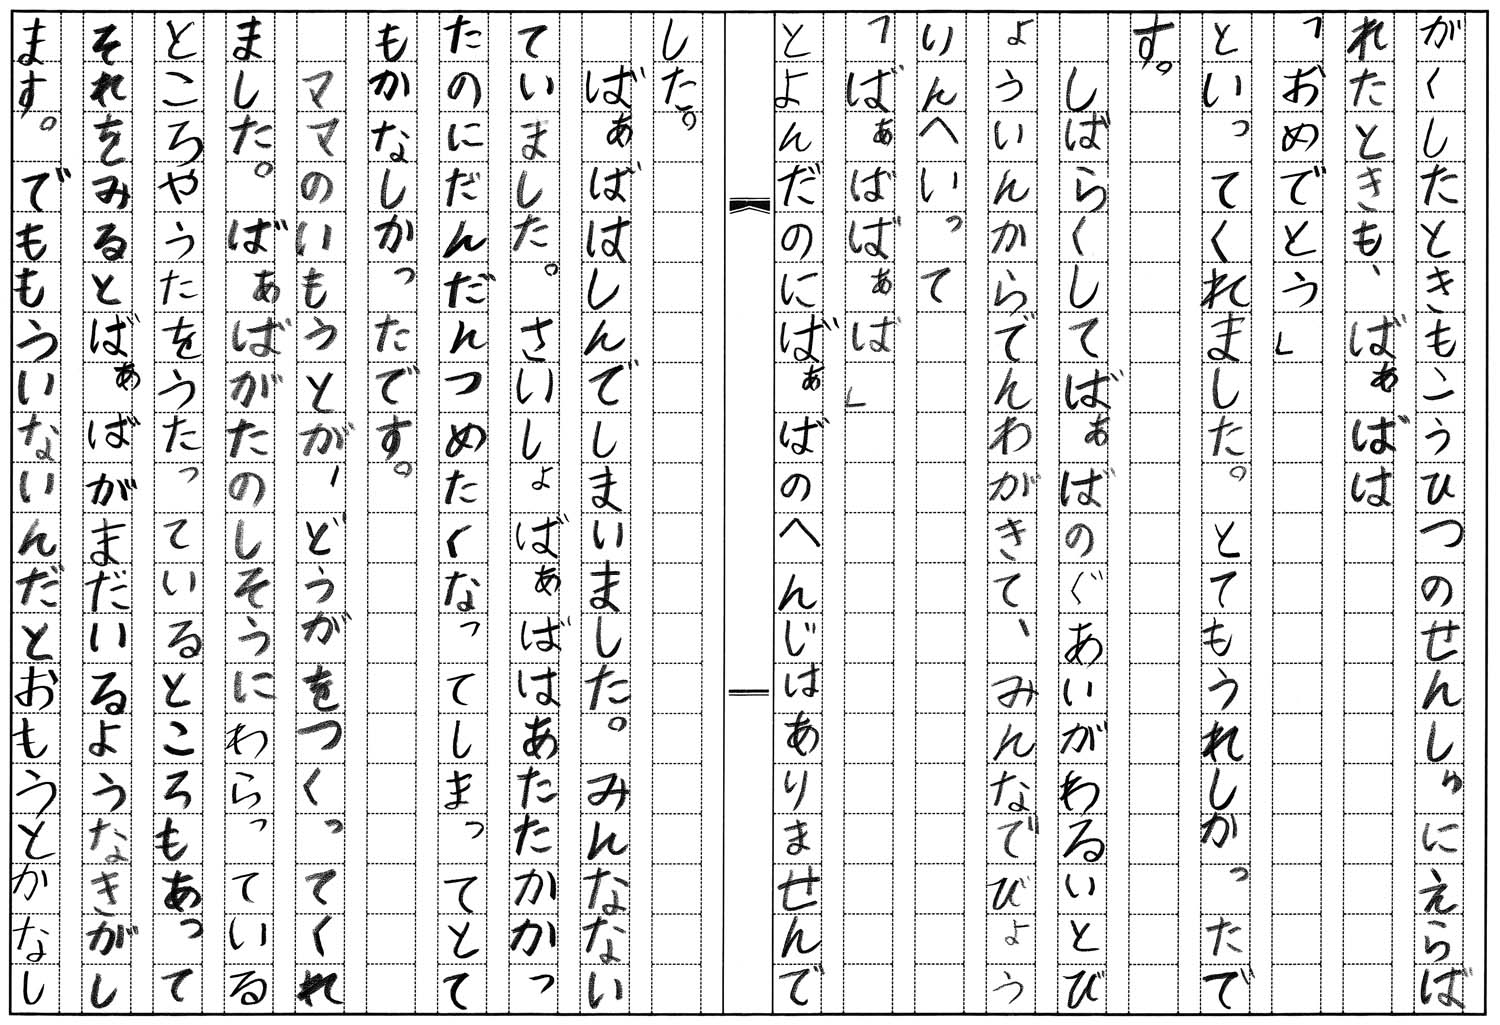 がくしたときもこうひつのせんしゅにえらば
れたときも、ばぁばは
「おめでとう」
といってくれました。とてもうれしかったで
す。
しばらくしてばぁばのぐあいがわるいとび
ょういんからでんわがきて、みんなでびょう
いんへいって
「ばぁばばぁば」
とよんだのにばぁばのへんじはありませんで
した。
ばぁばはしんでしまいました。みんなない
ていました。さいしょばぁばはあたたかかっ
たのにだんだんつめたくなってしまってとて
もかなしかったです。
ママのいもうとが、どうがをつくってくれ
ました。ばぁばがたのしそうにわらっている
ところやうたをうたっているところもあって
それをみるとばぁばがまだいるようなきがし
ます。でももういないんだとおもうとかなし